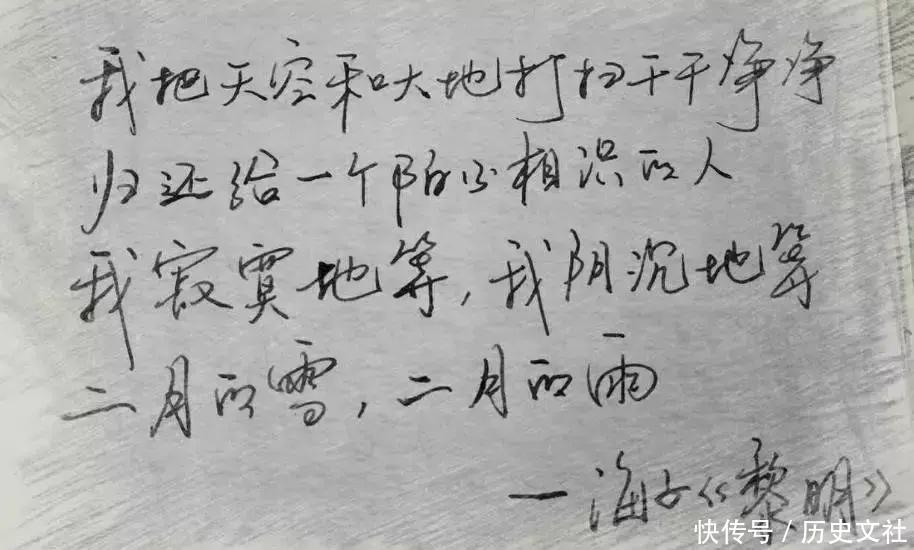 我把天空和大地打扫干干净净
归还给一个陌不相识的人
我寂寞地等,我阴沉地等
二月的雪,二月的雨
—海子《黎明》
快传号/历史文社